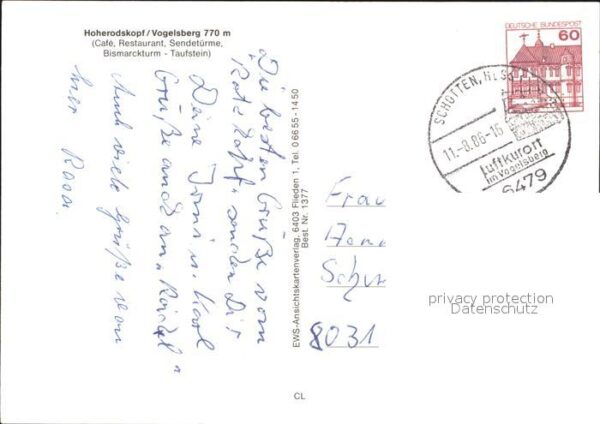 Hoherodskopf/Vogelsberg 770 m
(Café, Restaurant, Sendetürme,
Bismarckturm - Taufstein)
Die besten Grüße vom
senden Dir
Deine Irmi u. Karl
Grüße auch an
Auch viele Grüße von
hier Rosa.
EWS-Ansichtskartenverlag, 6403 Flieden 1, Tel. 0 66 55 - 14 50
Best. Nr. 1377
DEUTSCHE BUNDESPOST
60
SCHOTTEN, HESS
11.-8.86-16
Luftkurort
im Vogelsberg
6479
Frau
8031
privacy protection
Datenschutz
CL